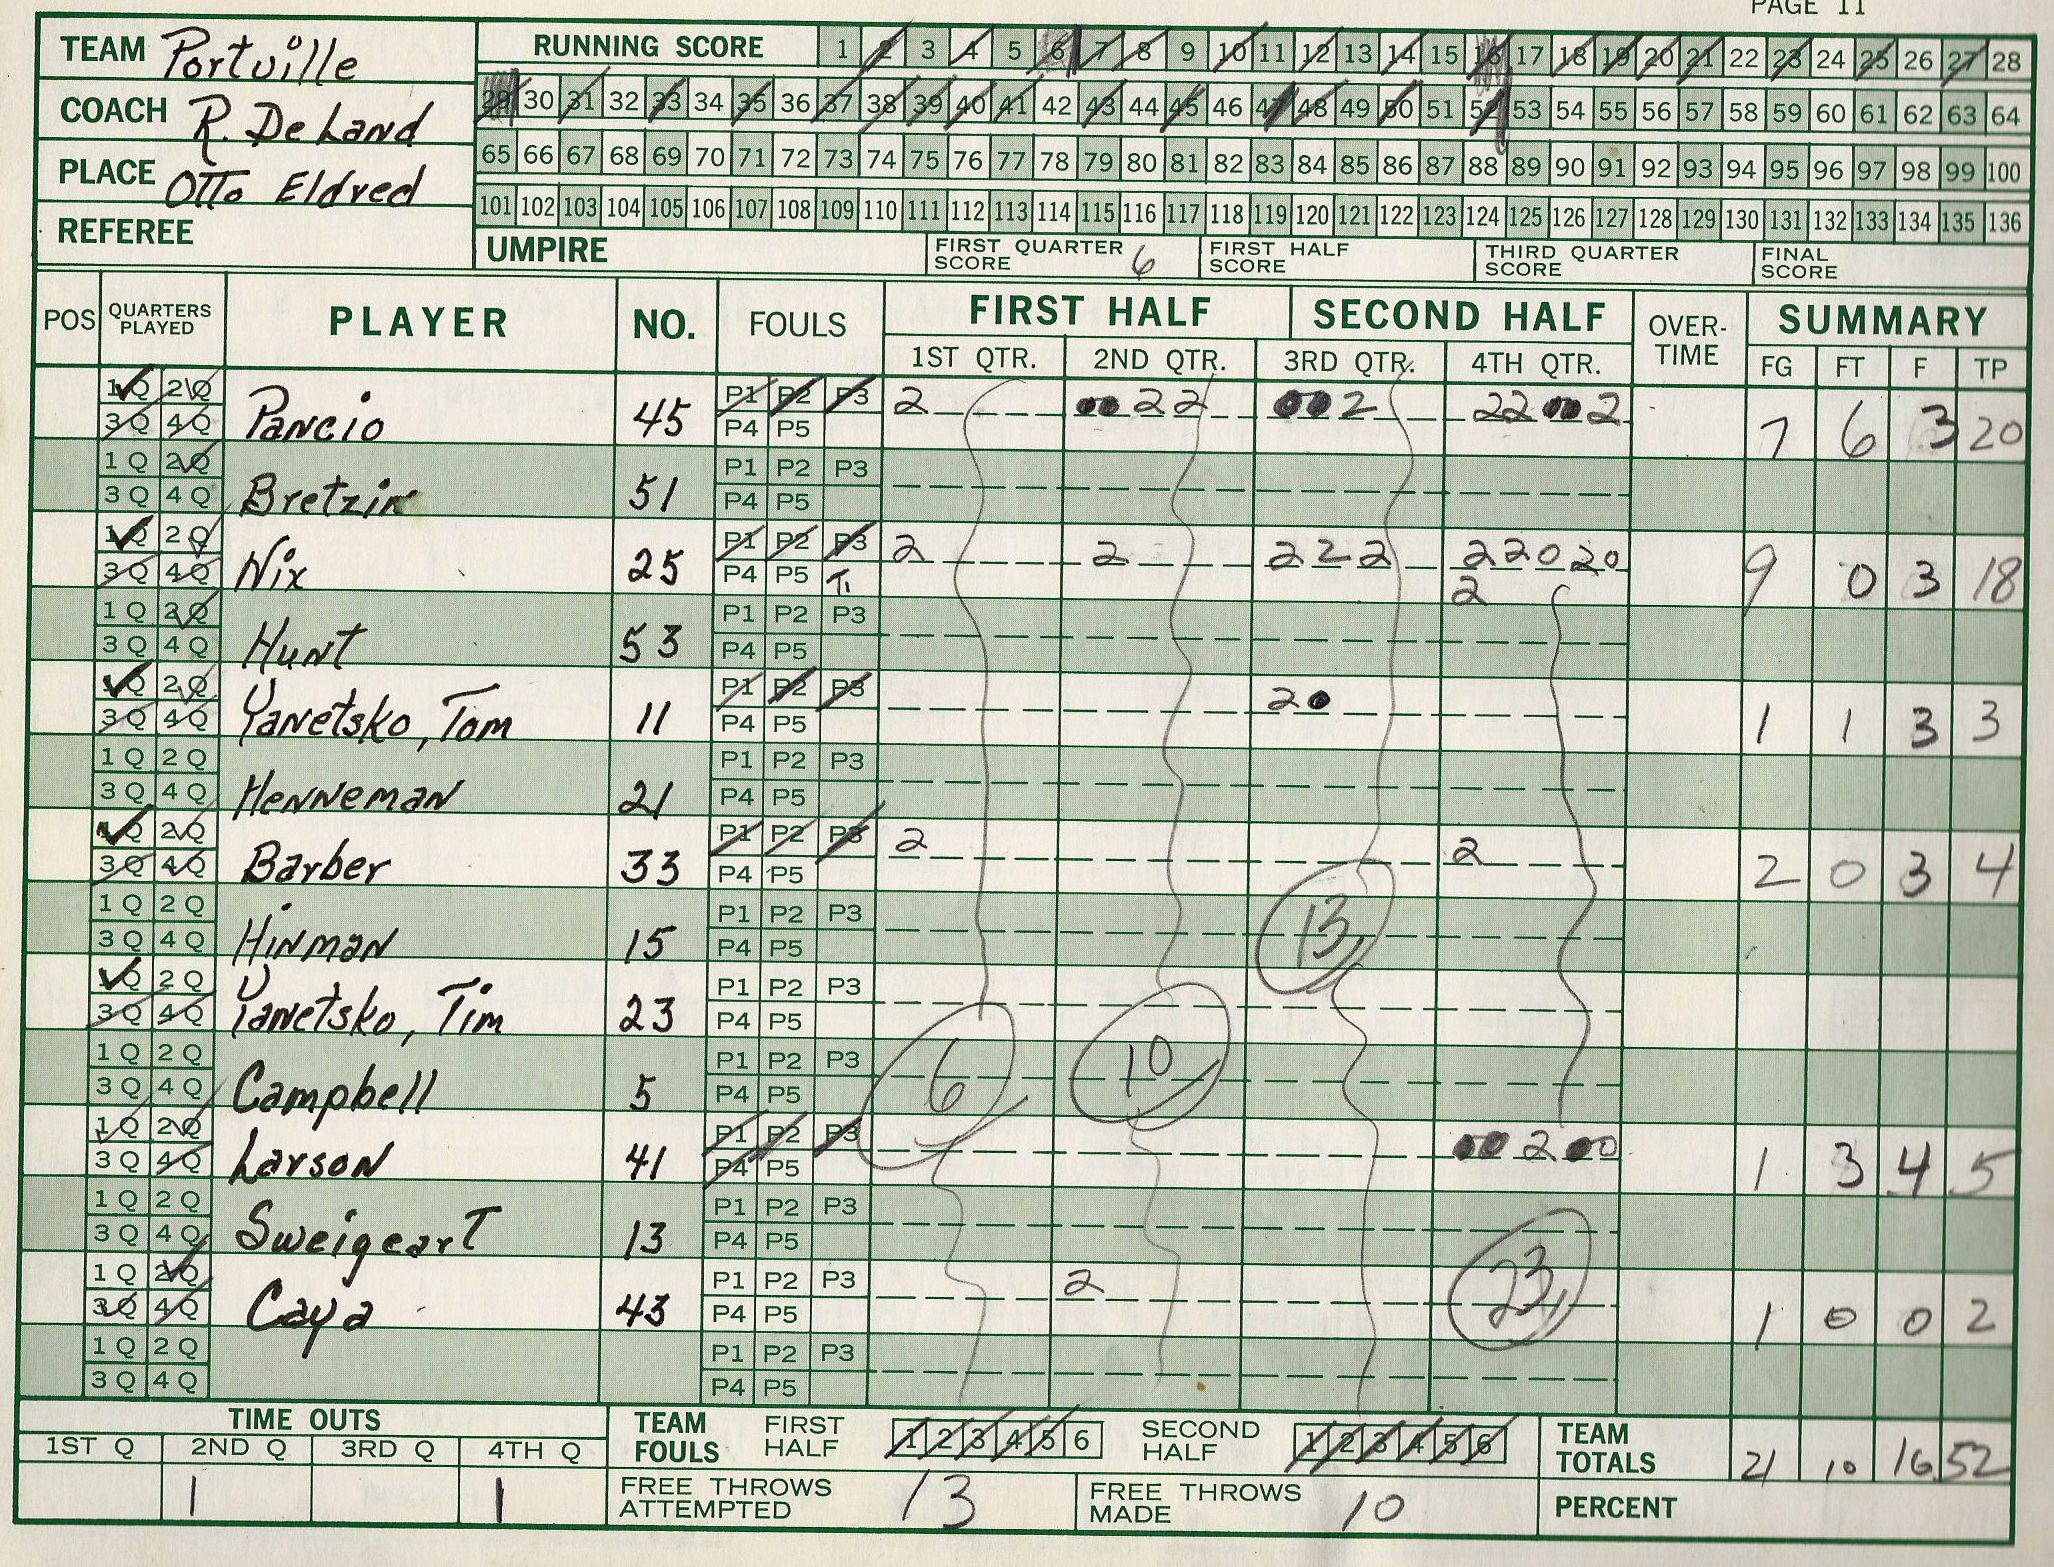 PAGE 11
TEAM Portville
RUNNING SCORE 1 2 3 4 5 6 7 8 9 10 11 12 13 14 15 16 17 18 19 20 21 22 23 24 25 26 27 28
COACH R. DeLand
29 30 31 32 33 34 35 36 37 38 39 40 41 42 43 44 45 46 47 48 49 50 51 52 53 54 55 56 57 58 59 60 61 62 63 64
PLACE Otto Eldred
65 66 67 68 69 70 71 72 73 74 75 76 77 78 79 80 81 82 83 84 85 86 87 88 89 90 91 92 93 94 95 96 97 98 99 100
101 102 103 104 105 106 107 108 109 110 111 112 113 114 115 116 117 118 119 120 121 122 123 124 125 126 127 128 129 130 131 132 133 134 135 136
REFEREE
UMPIRE
FIRST QUARTER SCORE 6
FIRST HALF SCORE
THIRD QUARTER SCORE
FINAL SCORE
POS QUARTERS PLAYED PLAYER NO. FOULS FIRST HALF SECOND HALF OVER-TIME SUMMARY
1ST QTR. 2ND QTR. 3RD QTR. 4TH QTR. FG FT F TP
1Q 2Q P1 P2 P3
3Q 4Q Pancio 45 P4 P5 2 00 2 2 00 2 2 2 00 2 7 6 3 20
1Q 2Q P1 P2 P3
3Q 4Q Bretzin 51 P4 P5
1Q 2Q P1 P2 P3
3Q 4Q Nix 25 P4 P5 T1 2 2 2 2 2 2 2 0 2 0 2 9 0 3 18
1Q 2Q P1 P2 P3
3Q 4Q Hunt 53 P4 P5
1Q 2Q P1 P2 P3
3Q 4Q Yanetsko, Tom 11 P4 P5 2 0 1 1 3 3
1Q 2Q P1 P2 P3
3Q 4Q Henneman 21 P4 P5
1Q 2Q P1 P2 P3
3Q 4Q Barber 33 P4 P5 2 2 2 0 3 4
1Q 2Q P1 P2 P3
3Q 4Q Hinman 15 P4 P5 13
1Q 2Q P1 P2 P3
3Q 4Q Yanetsko, Tim 23 P4 P5
1Q 2Q P1 P2 P3
3Q 4Q Campbell 5 P4 P5 6 10
1Q 2Q P1 P2 P3
3Q 4Q Larson 41 P4 P5 00 2 00 1 3 4 5
1Q 2Q P1 P2 P3
3Q 4Q Sweigeart 13 P4 P5
1Q 2Q P1 P2 P3
3Q 4Q Caya 43 P4 P5 2 23 1 0 0 2
1Q 2Q P1 P2 P3
3Q 4Q P4 P5
TIME OUTS
1ST Q 2ND Q 3RD Q 4TH Q
1 1
TEAM FOULS FIRST HALF 1 2 3 4 5 6 SECOND HALF 1 2 3 4 5 6
TEAM TOTALS 21 10 16 52
FREE THROWS ATTEMPTED 13
FREE THROWS MADE 10
PERCENT